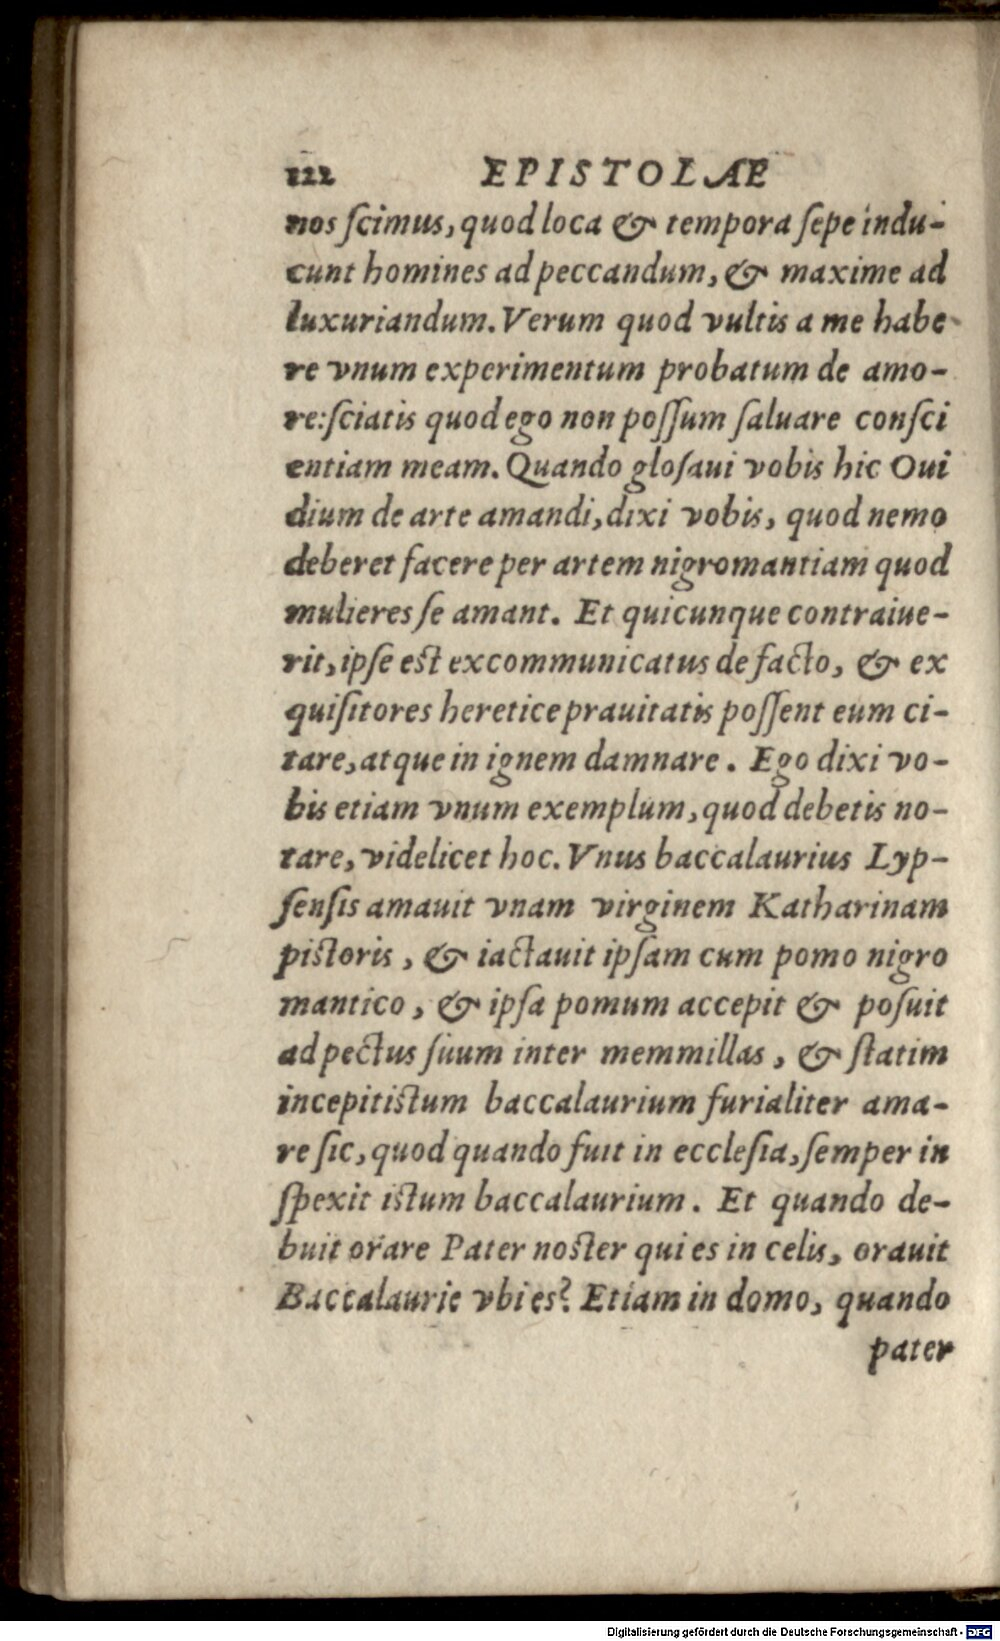 122 EPISTOLAE
nos ſcimus, quod loca & tempora ſepe indu-
cunt homines ad peccandum, & maxime ad
luxuriandum. Verum quod vultis a me habe-
re vnum experimentum probatum de amo-
re: ſciatis quod ego non poſſum ſaluare conſci
entiam meam. Quando gloſaui vobis hic Oui
dium de arte amandi, dixi vobis, quod nemo
deberet facere per artem nigromantiam quod
mulieres ſe amant. Et quicunque contraiue-
rit, ipſe eſt excommunicatus de facto, & ex
quiſitores heretice prauitatis poſſent eum ci-
tare, atque in ignem damnare. Ego dixi vo-
bis etiam vnum exemplum, quod debetis no-
tare, videlicet hoc. Vnus baccalaurius Lyp-
ſenſis amauit vnam virginem Katharinam
piſtoris, & iactauit ipſam cum pomo nigro
mantico, & ipſa pomum accepit & poſuit
ad pectus ſuum inter memmillas, & ſtatim
incepit iſtum baccalaurium furialiter ama-
re ſic, quod quando fuit in eccleſia, ſemper in
ſpexit iſtum baccalaurium. Et quando de-
buit orare Pater noſter qui es in celis, orauit
Baccalaurie vbi es? Etiam in domo, quando
pater
Digitalisierung gefördert durch die Deutsche Forschungsgemeinschaft - DFG